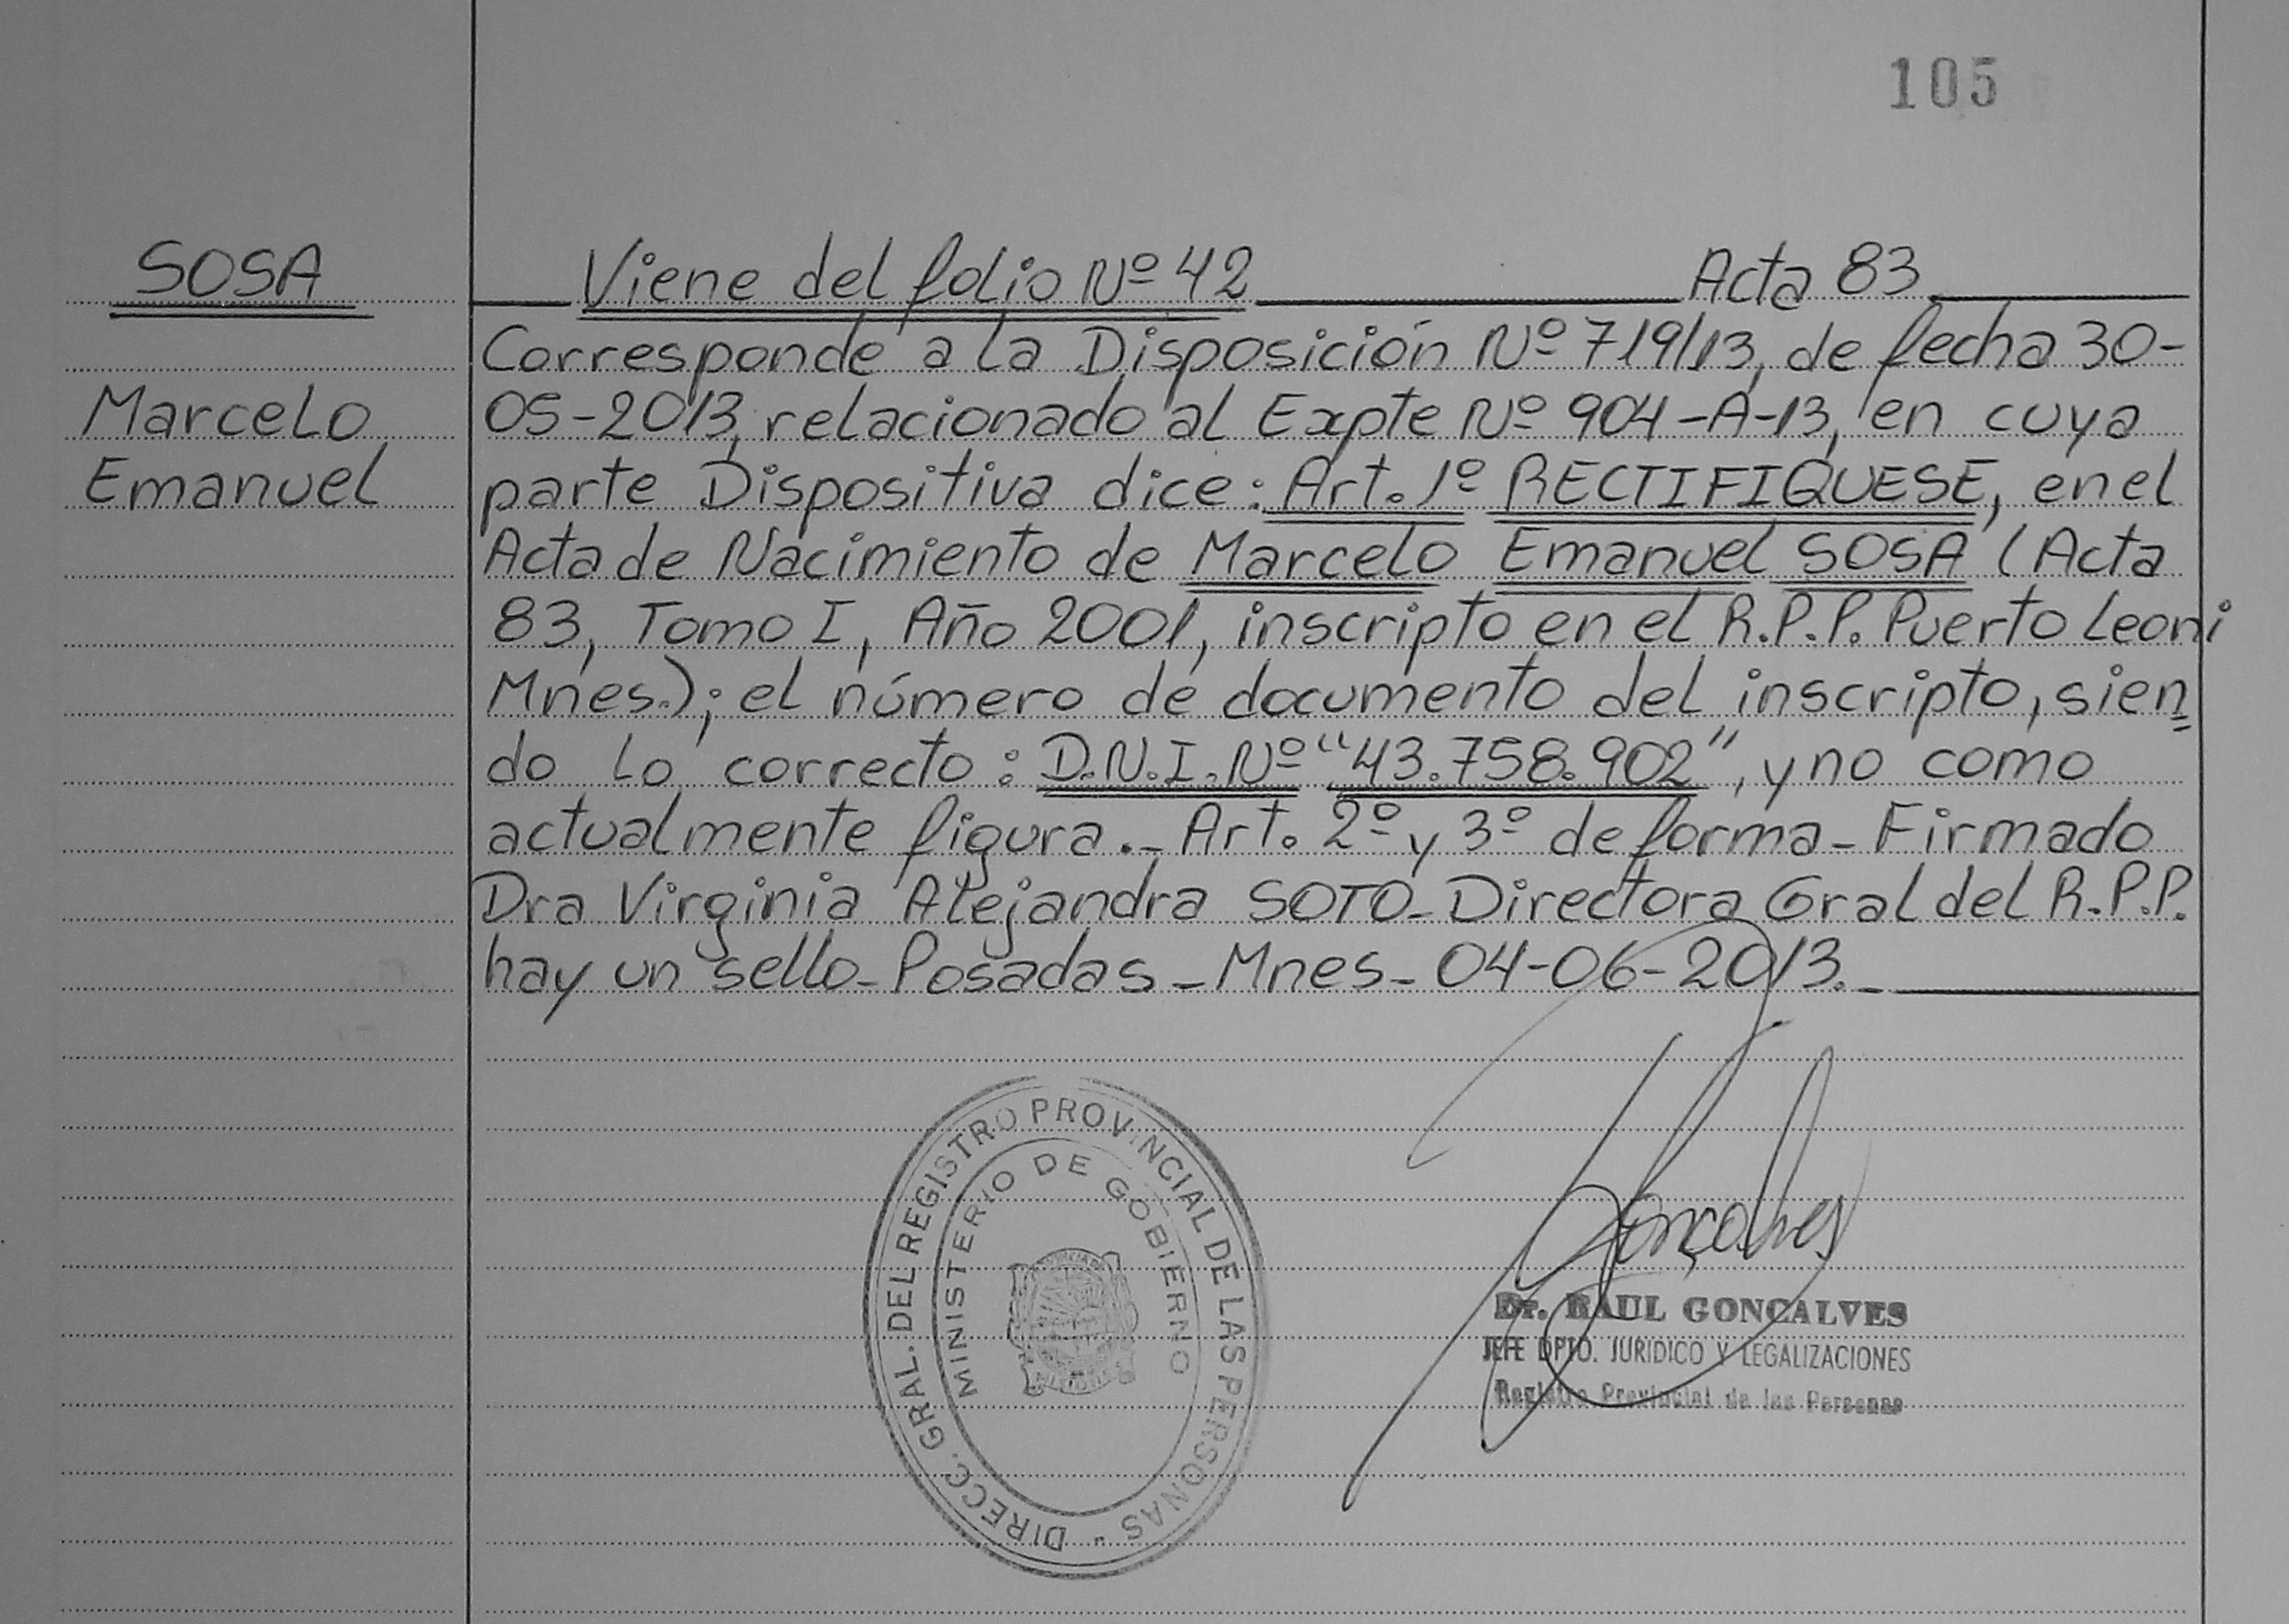 105
SOSA
Marcelo
Emanuel
Viene del folio Nº 42 Acta 83
Corresponde a la Disposición Nº 719/13, de fecha 30-
05-2013, relacionado al Expte Nº 904-A-13, en cuya
parte Dispositiva dice: Art. 1º RECTIFIQUESE, en el
Acta de Nacimiento de Marcelo Emanuel SOSA (Acta
83, Tomo I, Año 2001, inscripto en el R.P.P. Puerto Leoni
Mnes.); el número de documento del inscripto, sien
do lo correcto: D.N.I. Nº "43.758.902", y no como
actualmente figura.- Art. 2º y 3º de forma - Firmado
Dra Virginia Alejandra SOTO - Directora Gral del R.P.P.
hay un sello - Posadas - Mnes - 04-06-2013.-
DIRECC. GRAL. DEL REGISTRO PROVINCIAL DE LAS PERSONAS -
MINISTERIO DE GOBIERNO
Goncalves
Dr. RAUL GONCALVES
JEFE DPTO. JURIDICO Y LEGALIZACIONES
Registro Provincial de las Personas